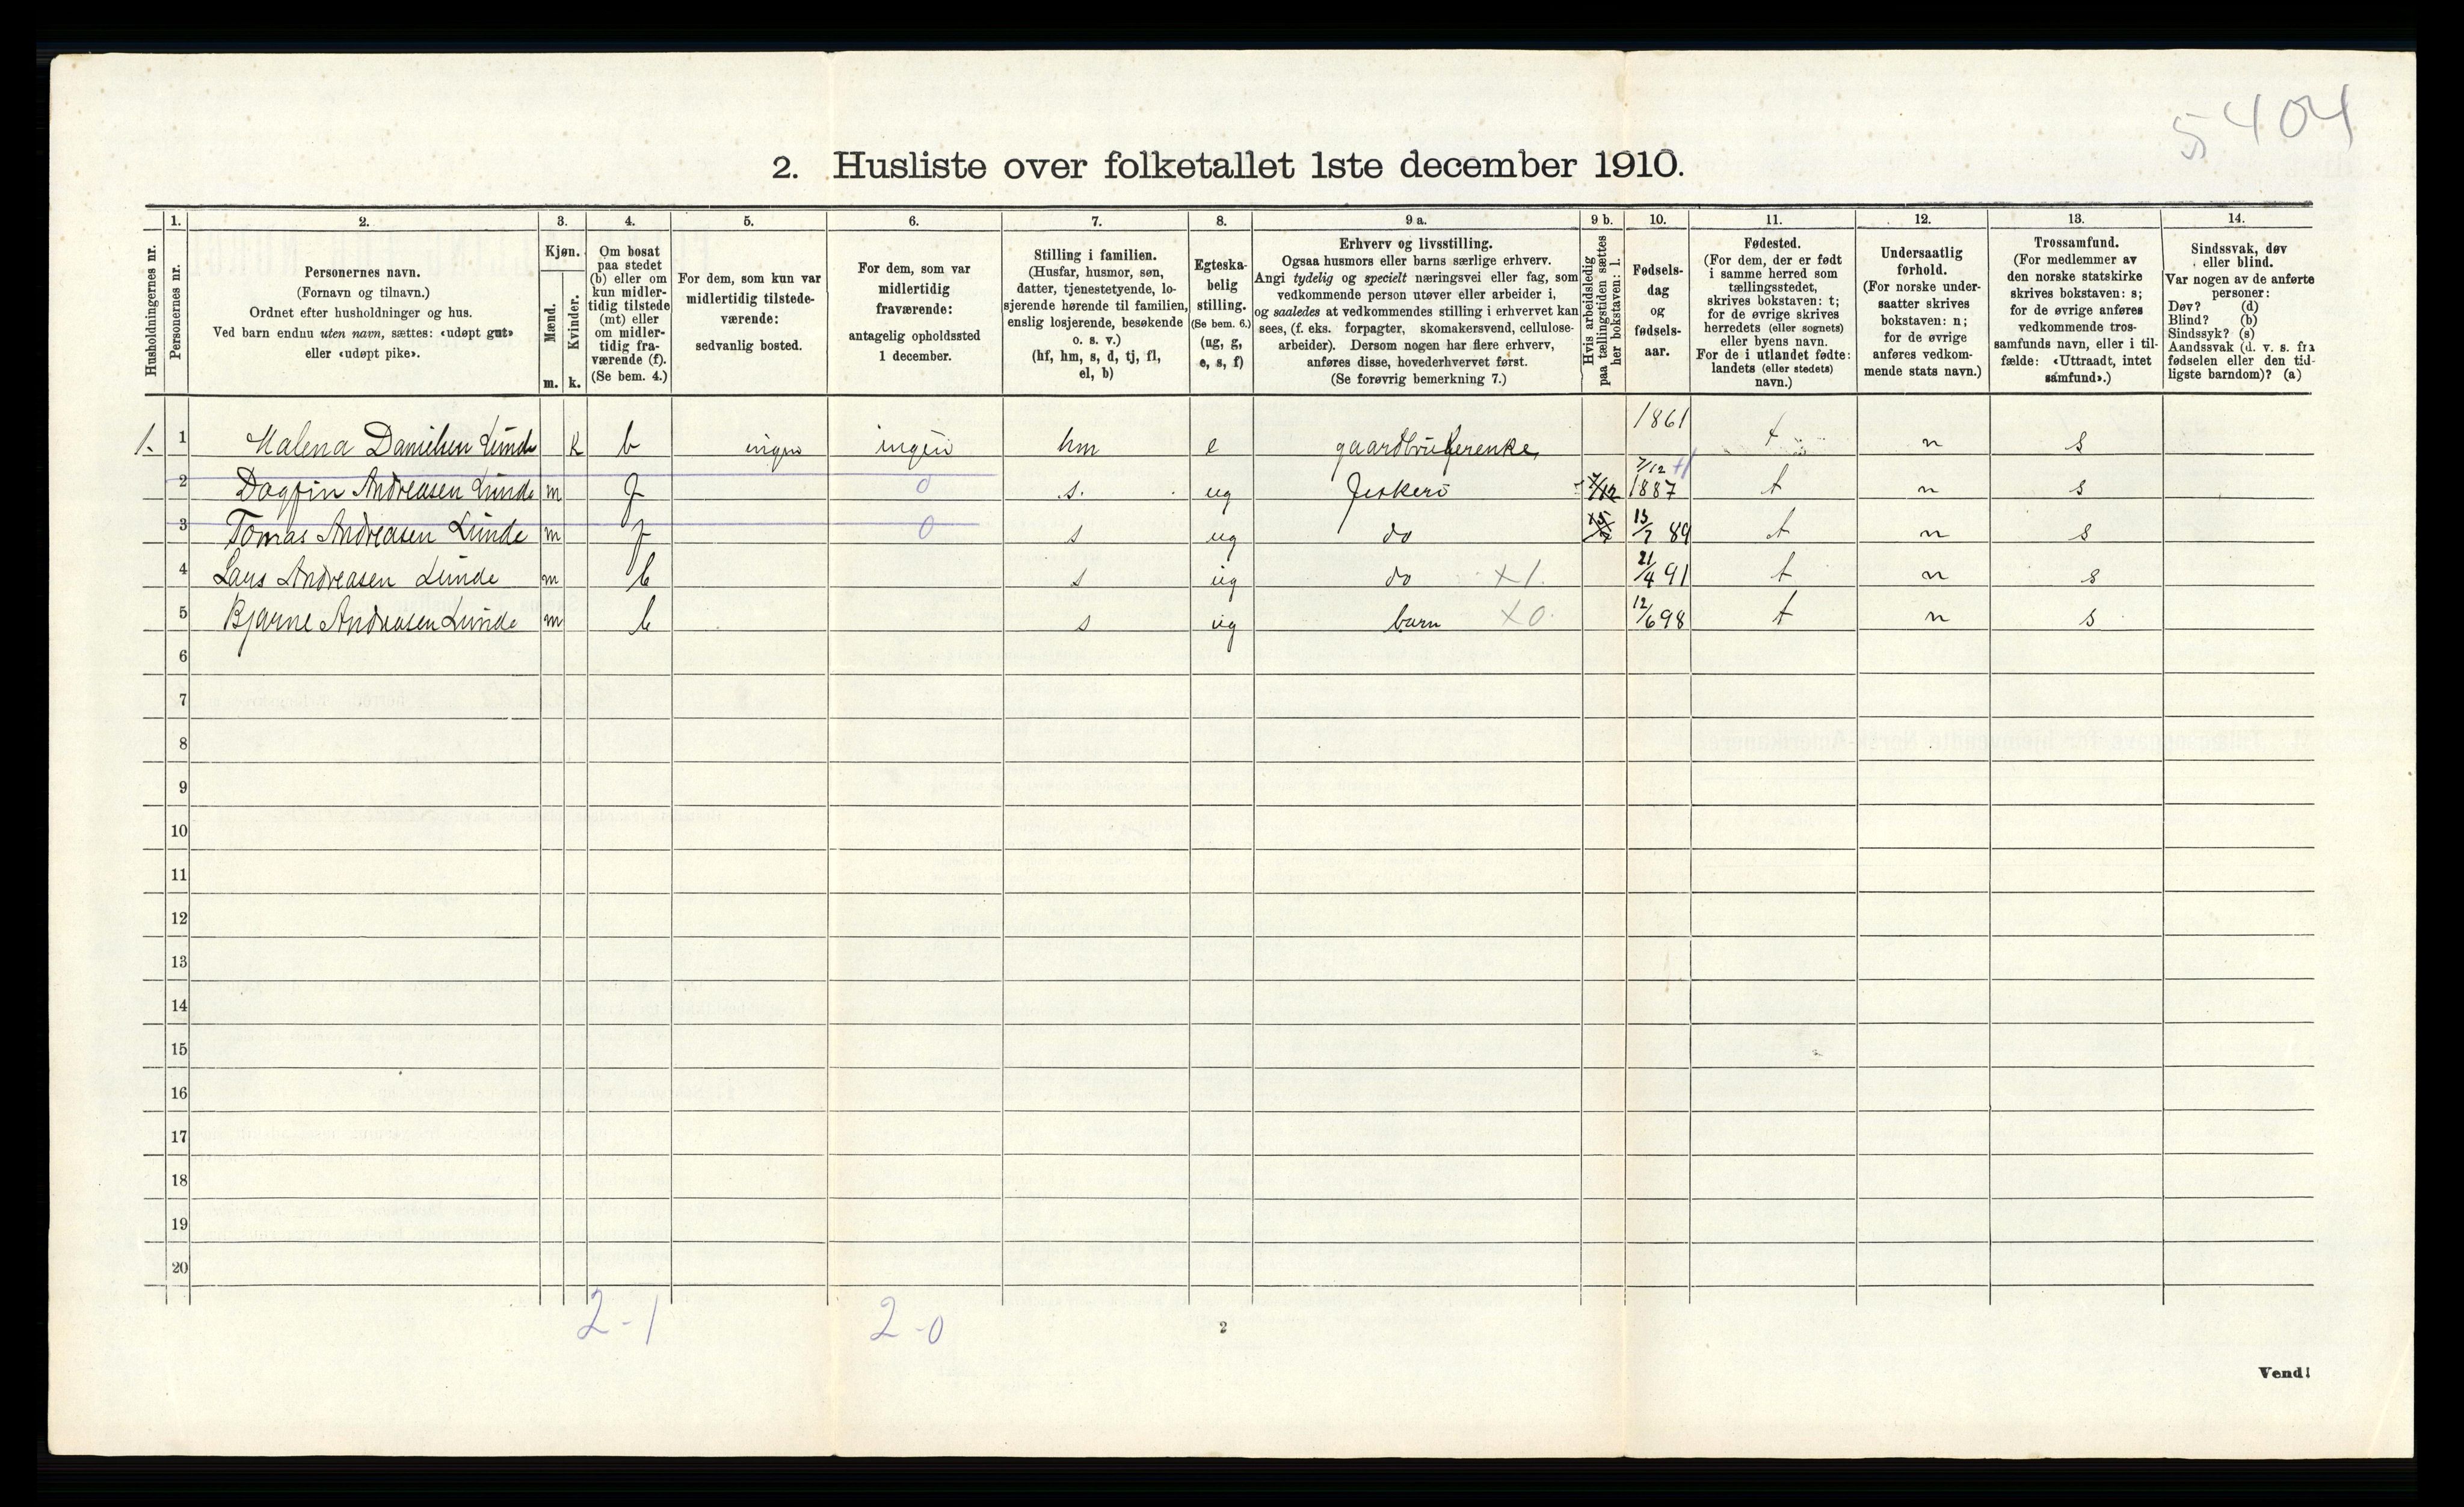 5404
2. Husliste over folketallet 1ste december 1910.
Husholdningernes nr.
1.
Personernes nr.
2.
Personernes navn.
(Fornavn og tilnavn.)
Ordnet efter husholdninger og hus.
Ved barn endnu uten navn, sættes: «udøpt gut»
eller «udøpt pike».
3.
Kjøn.
Mænd.
Kvinder.
m. k.
4.
Om bosat
paa stedet
(b) eller om
kun midler-
tidig tilstede
(mt) eller
om midler-
tidig fra-
værende (f).
(Se bem. 4.)
5.
For dem, som kun var
midlertidig tilstede-
værende:
sedvanlig bosted.
6.
For dem, som var
midlertidig
fraværende:
antagelig opholdssted
1 december.
7.
Stilling i familien.
(Husfar, husmor, søn,
datter, tjenestetyende, lo-
sjerende hørende til familien,
enslig losjerende, besøkende
o. s. v.)
(hf, hm, s, d, tj, fl,
el, b)
8.
Egteska-
belig
stilling.
(Se bem. 6.)
(ug, g,
e, s, f)
9 a.
Erhverv og livsstilling.
Ogsaa husmors eller barns særlige erhverv.
Angi tydelig og specielt næringsvei eller fag, som
vedkommende person utøver eller arbeider i,
og saaledes at vedkommendes stilling i erhvervet kan
sees, (f. eks. forpagter, skomakersvend, cellulose-
arbeider). Dersom nogen har flere erhverv,
anføres disse, hovederhvervet først.
(Se forøvrig bemerkning 7.)
9 b.
Hvis arbeidsledig
paa tællingstiden sættes
her bokstaven: l.
10.
Fødsels-
dag
og
fødsels-
aar.
11.
Fødested.
(For dem, der er født
i samme herred som
tællingsstedet,
skrives bokstaven: t;
for de øvrige skrives
herredets (eller sognets)
eller byens navn.
For de i utlandet fødte:
landets (eller stedets)
navn.)
12.
Undersaatlig
forhold.
(For norske under-
saatter skrives
bokstaven: n;
for de øvrige
anføres vedkom-
mende stats navn.)
13.
Trossamfund.
(For medlemmer av
den norske statskirke
skrives bokstaven: s;
for de øvrige anføres
vedkommende tros-
samfunds navn, eller i til-
fælde: «Uttraadt, intet
samfund».)
14.
Sindssvak, døv
eller blind.
Var nogen av de anførte
personer:
Døv? (d)
Blind? (b)
Sindssyk? (s)
Aandssvak (d. v. s. fra
fødselen eller den tid-
ligste barndom)? (a)
1. 1 Malena Danielsen Lunde k b ingen ingen hm e gaardbrukerenke 1861 t n s
2 Dagfin Andreasen Lunde m f 0 s. ug fiskeri 7/12 7/12 1887 t n s
3 Tomas Andreasen Lunde m f 0 s ug do 13/7 89 t n s
4 Lars Andreasen Lunde m b s ug do x1. 21/4 91 t n s
5 Bjarne Andreasen Lunde m b s ug barn x0. 12/6 98 t n s
6
7
8
9
10
11
12
13
14
15
16
17
18
19
20
2-1 2-0
2
Vend!